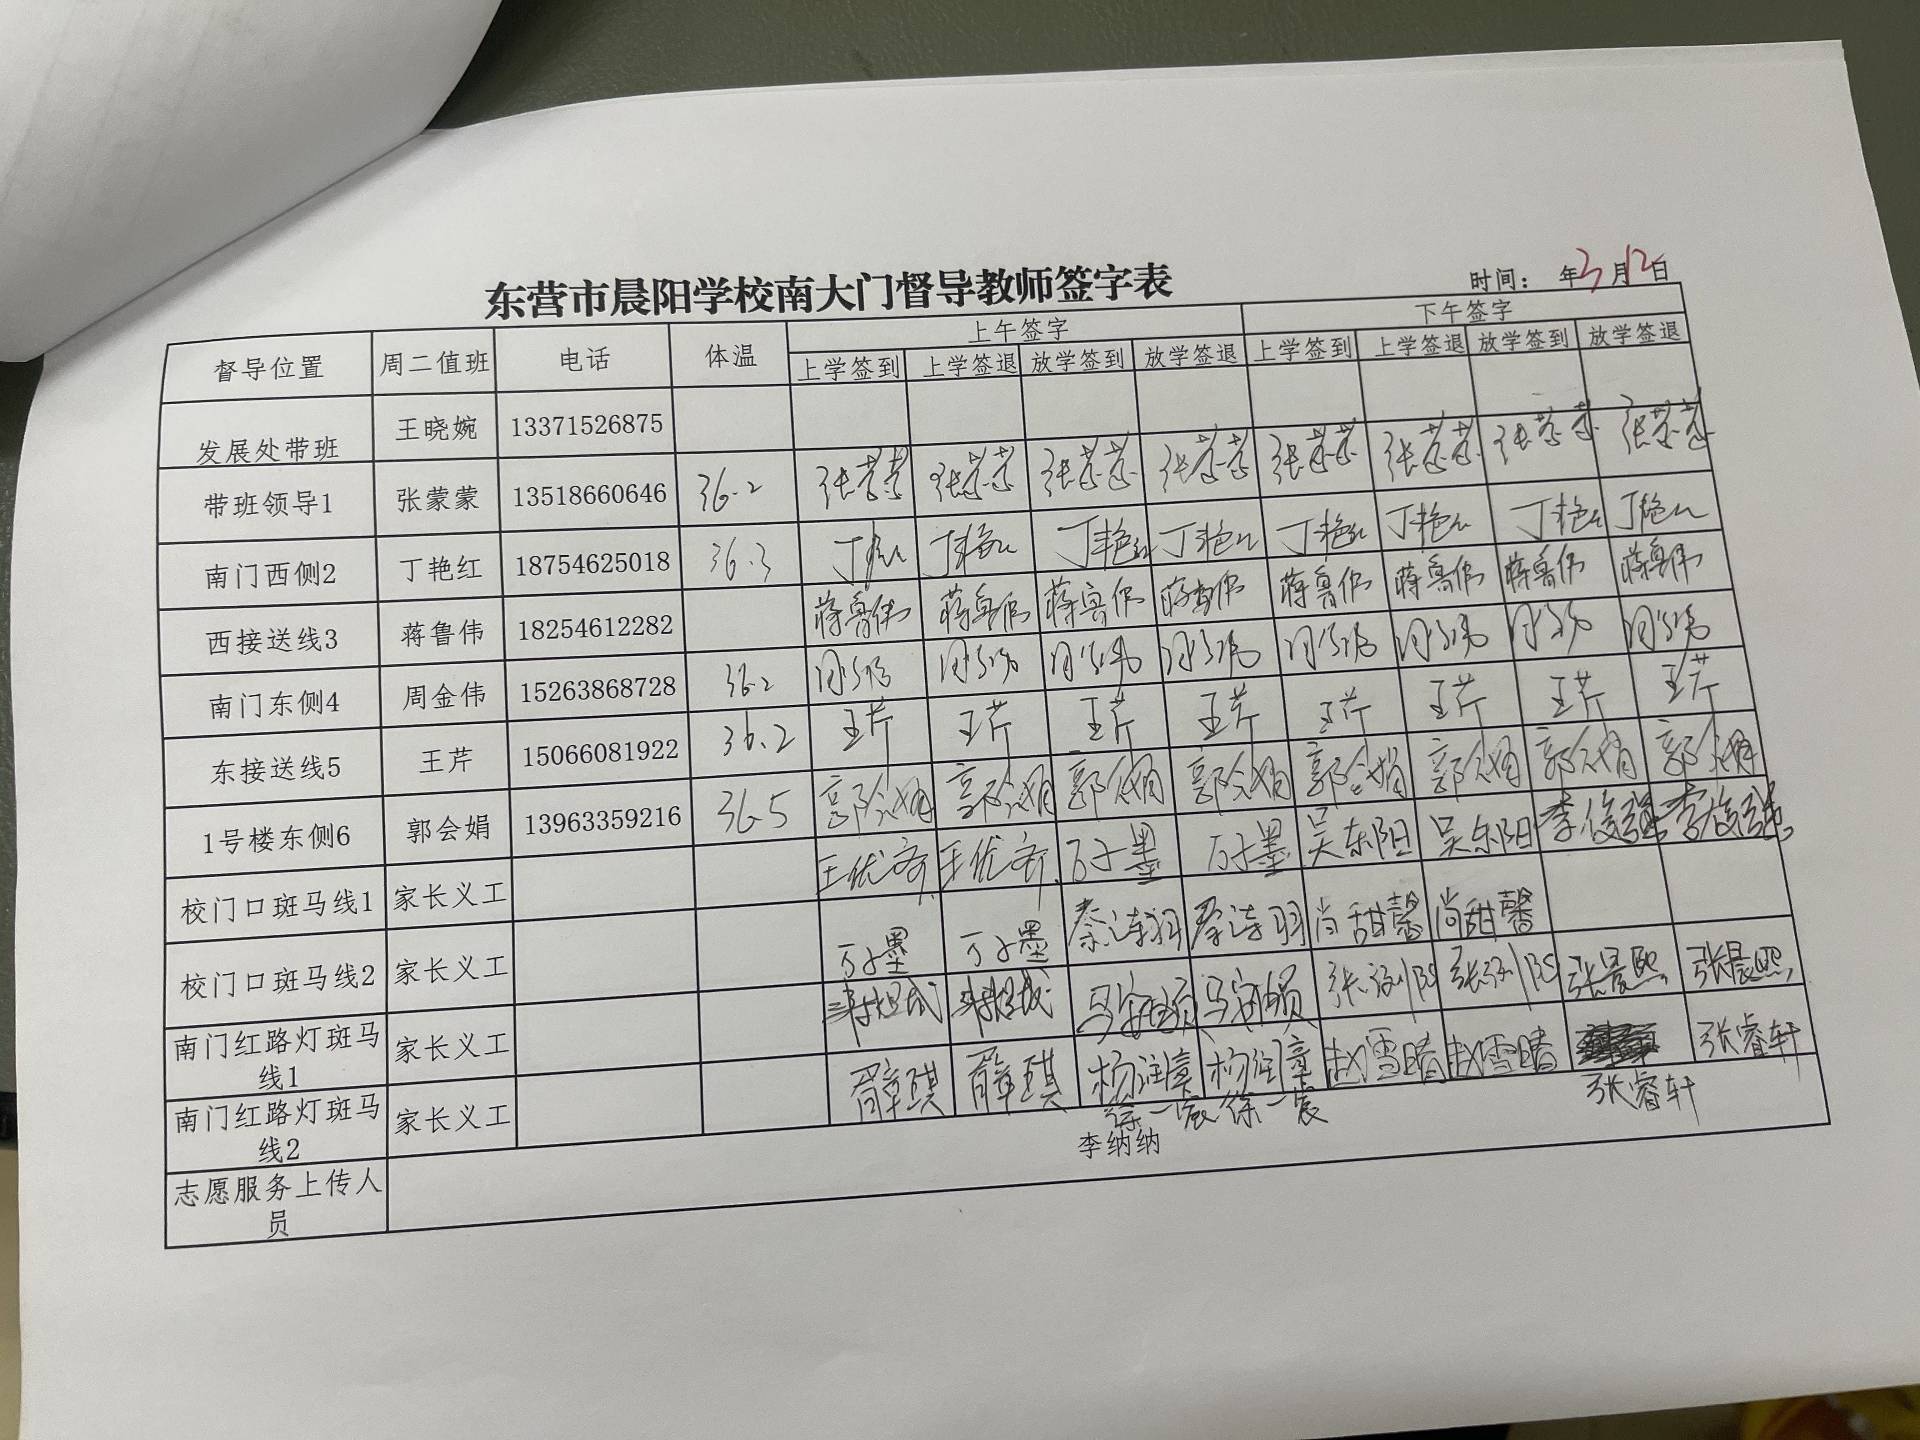 东营市晨阳学校南大门督导教师签字表
时间： 年3月12日
督导位置 周二值班 电话 体温 上午签字 下午签字
上学签到 上学签退 放学签到 放学签退 上学签到 上学签退 放学签到 放学签退
发展处带班 王晓婉 13371526875
带班领导1 张蒙蒙 13518660646 36.2 张蒙蒙 张蒙蒙 张蒙蒙 张蒙蒙 张蒙蒙 张蒙蒙 张蒙蒙 张蒙蒙
南门西侧2 丁艳红 18754625018 36.3 丁艳红 丁艳红 丁艳红 丁艳红 丁艳红 丁艳红 丁艳红 丁艳红
西接送线3 蒋鲁伟 18254612282 蒋鲁伟 蒋鲁伟 蒋鲁伟 蒋鲁伟 蒋鲁伟 蒋鲁伟 蒋鲁伟 蒋鲁伟
南门东侧4 周金伟 15263868728 36.2 周金伟 周金伟 周金伟 周金伟 周金伟 周金伟 周金伟 周金伟
东接送线5 王芹 15066081922 36.2 王芹 王芹 王芹 王芹 王芹 王芹 王芹 王芹
1号楼东侧6 郭会娟 13963359216 36.5 郭会娟 郭会娟 郭会娟 郭会娟 郭会娟 郭会娟 郭会娟 郭会娟
校门口斑马线1 家长义工 王优齐 王优齐 万子墨 万子墨 吴东阳 吴东阳 李俊强 李俊强
校门口斑马线2 家长义工 万子墨 万子墨 秦连羽 秦连羽 尚甜馨 尚甜馨
南门红路灯斑马
线1 家长义工 张景熙 张景熙
南门红路灯斑马
线2 家长义工 薛琪 薛琪 杨 杨 赵雪晴 赵雪晴 张睿轩
徐一宸 徐一宸 张睿轩
志愿服务上传人
员 李纳纳